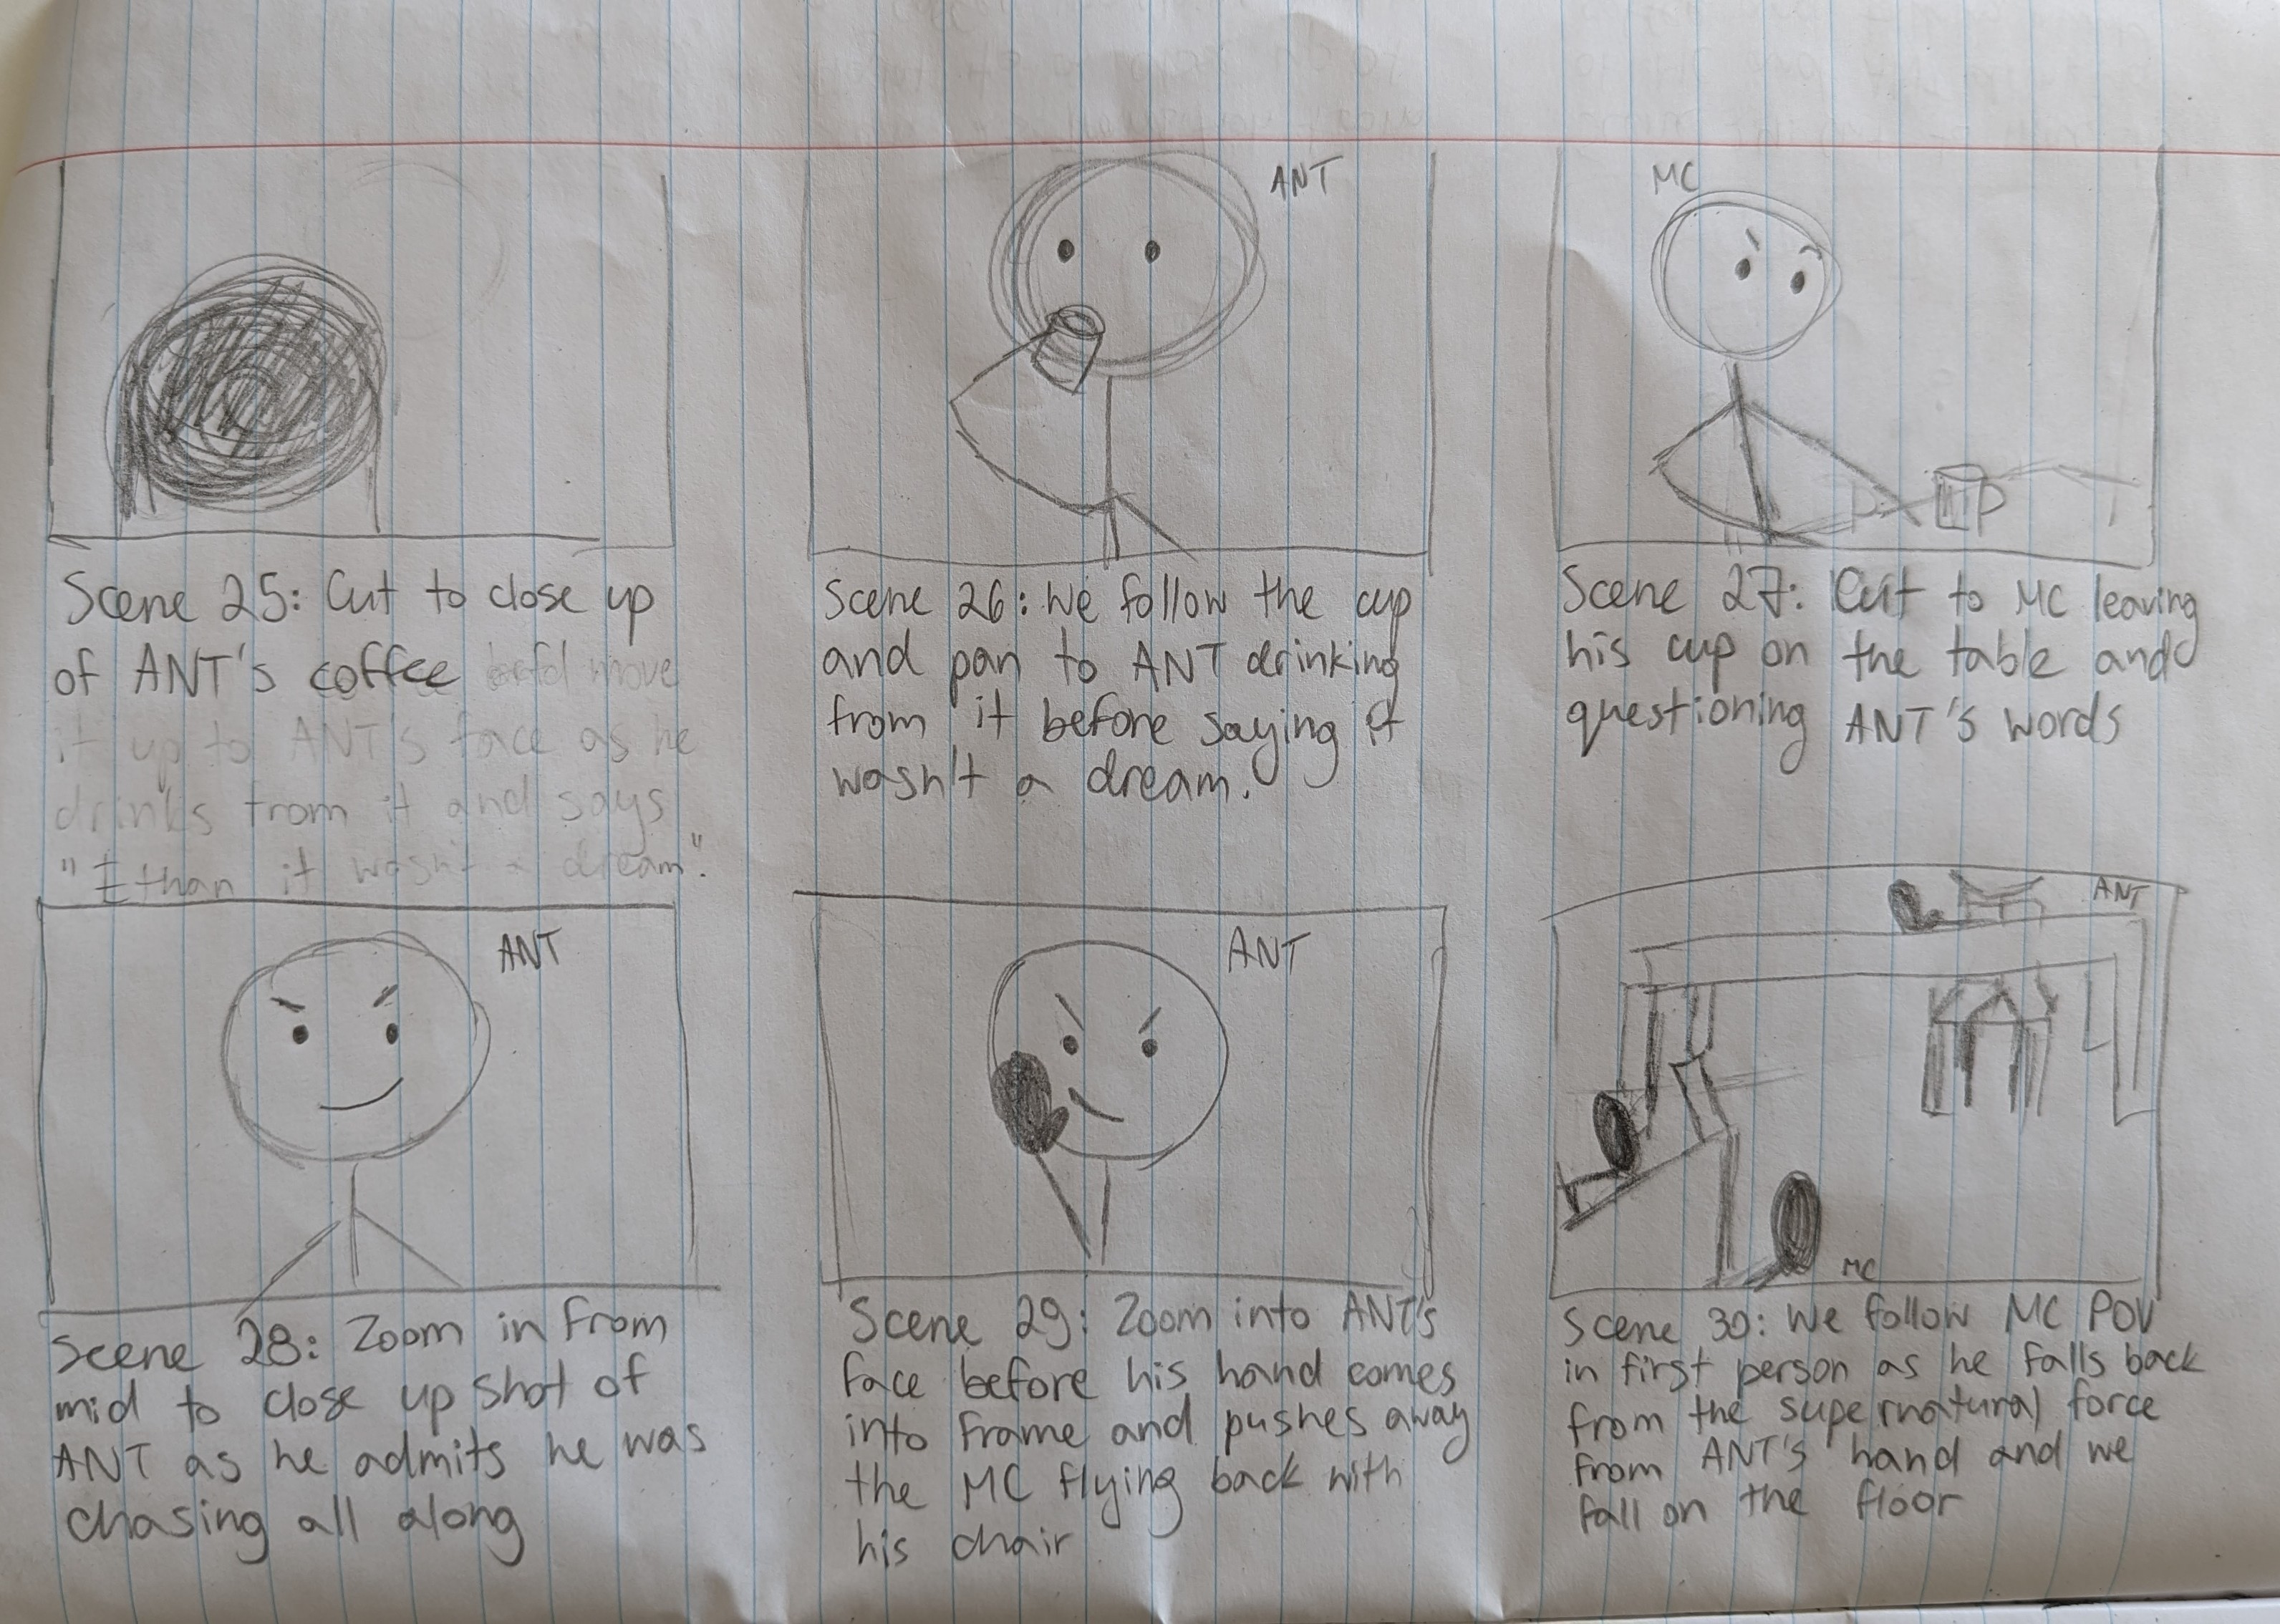 ANT
MC
Scene 25: Cut to close up
of ANT's coffee move
it up to ANT's face as he
drinks from it and says
it wasn't a dream".
Scene 26: We follow the cup
and pan to ANT drinking
from it before saying it
wasn't a dream.
Scene 27: Cut to MC leaving
his cup on the table and
questioning ANT's words
ANT
ANT
ANT
MC
Scene 28: Zoom in from
mid to close up shot of
ANT as he admits he was
chasing all along
Scene 29: Zoom into ANT's
face before his hand comes
into frame and pushes away
the MC flying back with
his chair
Scene 30: We follow MC POV
in first person as he falls back
from the supernatural force
from ANT's hand and we
fall on the floor